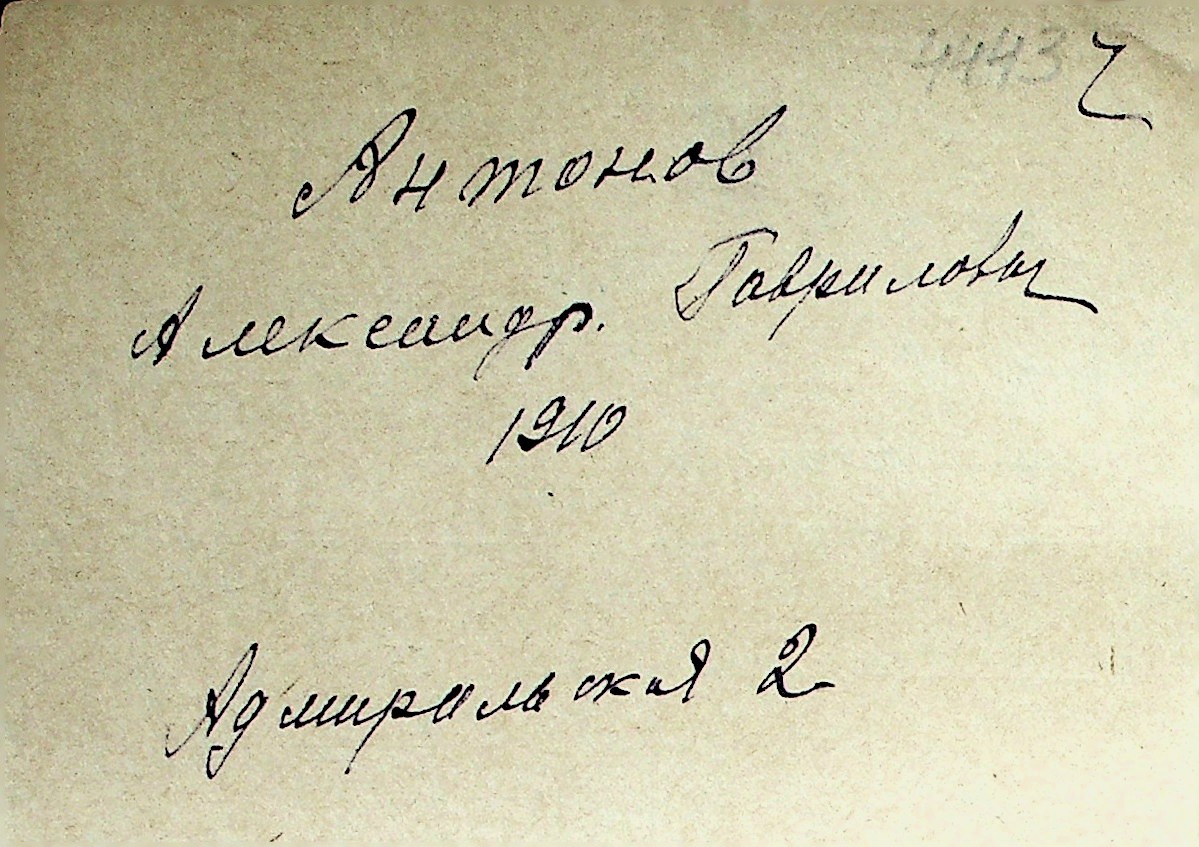 4443 ч
Антонов
Александр. Гаврилович
1910
Адмиральская 2